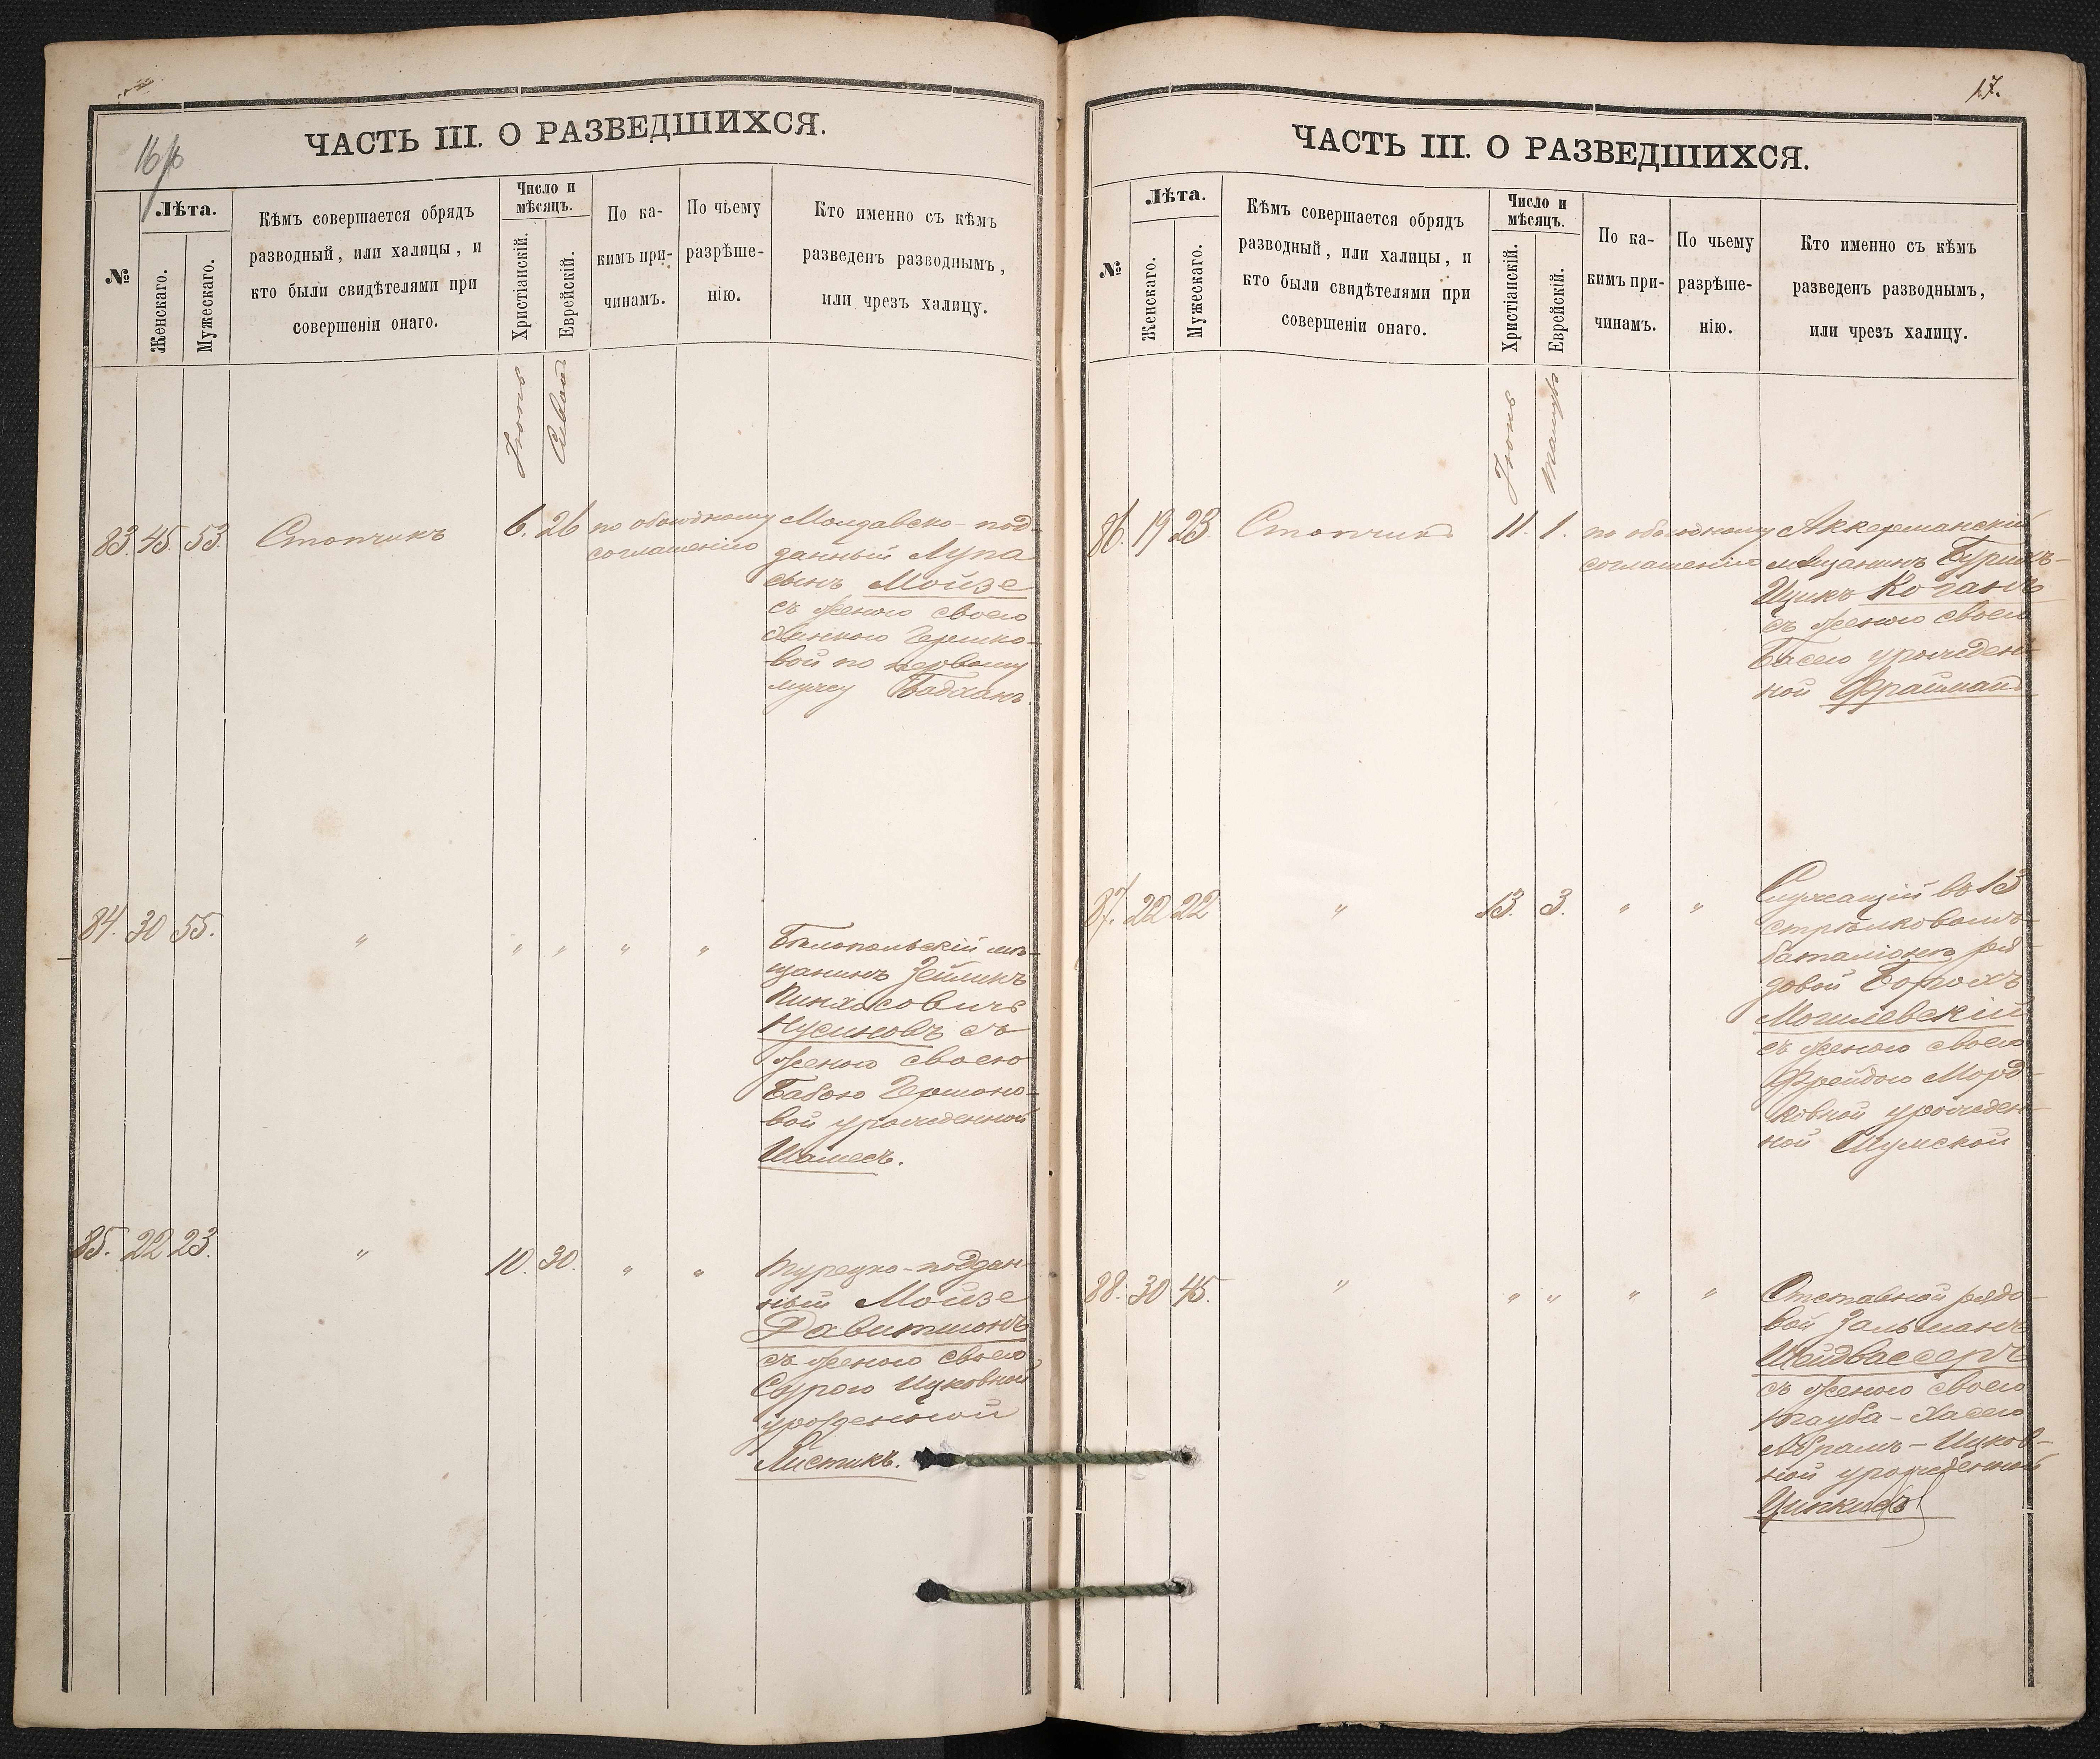 16
ЧАСТЬ III. О РАЗВЕДШИХСЯ.
№
Лѣта.
Женскаго.
Мужескаго.
Кѣмъ совершается обрядъ
разводный, или халицы, и
кто были свидѣтелями при
совершеніи онаго.
Число и
мѣсяцъ.
Христіанскій.
Еврейскій.
По ка-
кимъ при-
чинамъ.
По чьему
разрѣше-
нію.
Кто именно съ кѣмъ
разведенъ разводнымъ,
или чрезъ халицу.
Іюнь
Сивонъ
83. 45. 53. Стопчикъ 6. 26 по обоюдному
соглашенію
Молдавско-под-
данный Лупа
сынъ Мойзе
съ женою своею
Хинкою Гершко-
вой по первому
мужу Бадханъ.
84. 30 55. " " " " "
Бѣлопольскій мѣ-
щанинъ Зейликъ
Пинхасовичъ
Нусиновъ съ
женою своею
Бабою Гершоно-
вой урожденной
Шамесъ.
85. 22 23. " 10. 30. " "
Турецко-поддан-
ный Мойзе
Давитшонъ
съ женою своею
Сурою Ицковной
урожденной
Листикъ.
17.
ЧАСТЬ III. О РАЗВЕДШИХСЯ.
№
Лѣта.
Женскаго.
Мужескаго.
Кѣмъ совершается обрядъ
разводный, или халицы, и
кто были свидѣтелями при
совершеніи онаго.
Число и
мѣсяцъ.
Христіанскій.
Еврейскій.
По ка-
кимъ при-
чинамъ.
По чьему
разрѣше-
нію.
Кто именно съ кѣмъ
разведенъ разводнымъ,
или чрезъ халицу.
Іюнь
Тамузъ
86. 19 23 Стопчикъ 11. 1. по обоюдному
соглашенію
Аккерманскій
мѣщанинъ Бурихъ-
Ицикъ Коганъ
съ женою своею
Басею урожден-
ной Фрайманъ
87. 22 22 " 13. 3. " "
Служащій въ 13
стрѣлковомъ
баталіонѣ ря-
довой Борохъ
Могилевскій
съ женою своею
Фрейдою Морд-
ковной урожден-
ной Шумской
88. 30 45. " " " " "
Отставной рядо-
вой Зальманъ
Шейдвассеръ
съ женою своею
Тауба-Хасею
Абрамъ-Ицков-
ной урожденной